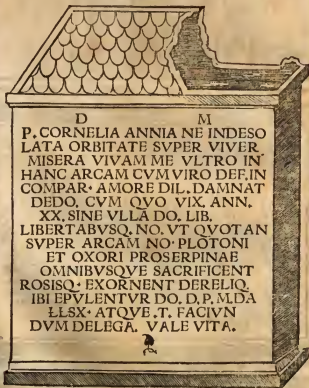 D M
P. CORNELIA ANNIA NE INDESO
LATA ORBITATE SVPER VIVER
MISERA VIVAM ME VLTRO IN
HANC ARCAM CVM VIRO DEF. IN
COMPAR· AMORE DIL. DAMNAT
DEDO. CVM QVO VIX. ANN.
XX. SINE VLLA DO. LIB.
LIBERTABVSQ. NO. VT QVOTAN
SVPER ARCAM NO· PLŌTONI
ET OXORI PROSERPINAE
OMNIBVSQVE SACRIFICENT
ROSISQ· EXORNENT DERELIQ.
IBI EPVLENTVR DO. D. P. M. DA
LLSX· ATQVE .T. FACIVN
DVM DELEGA. VALE VITA.